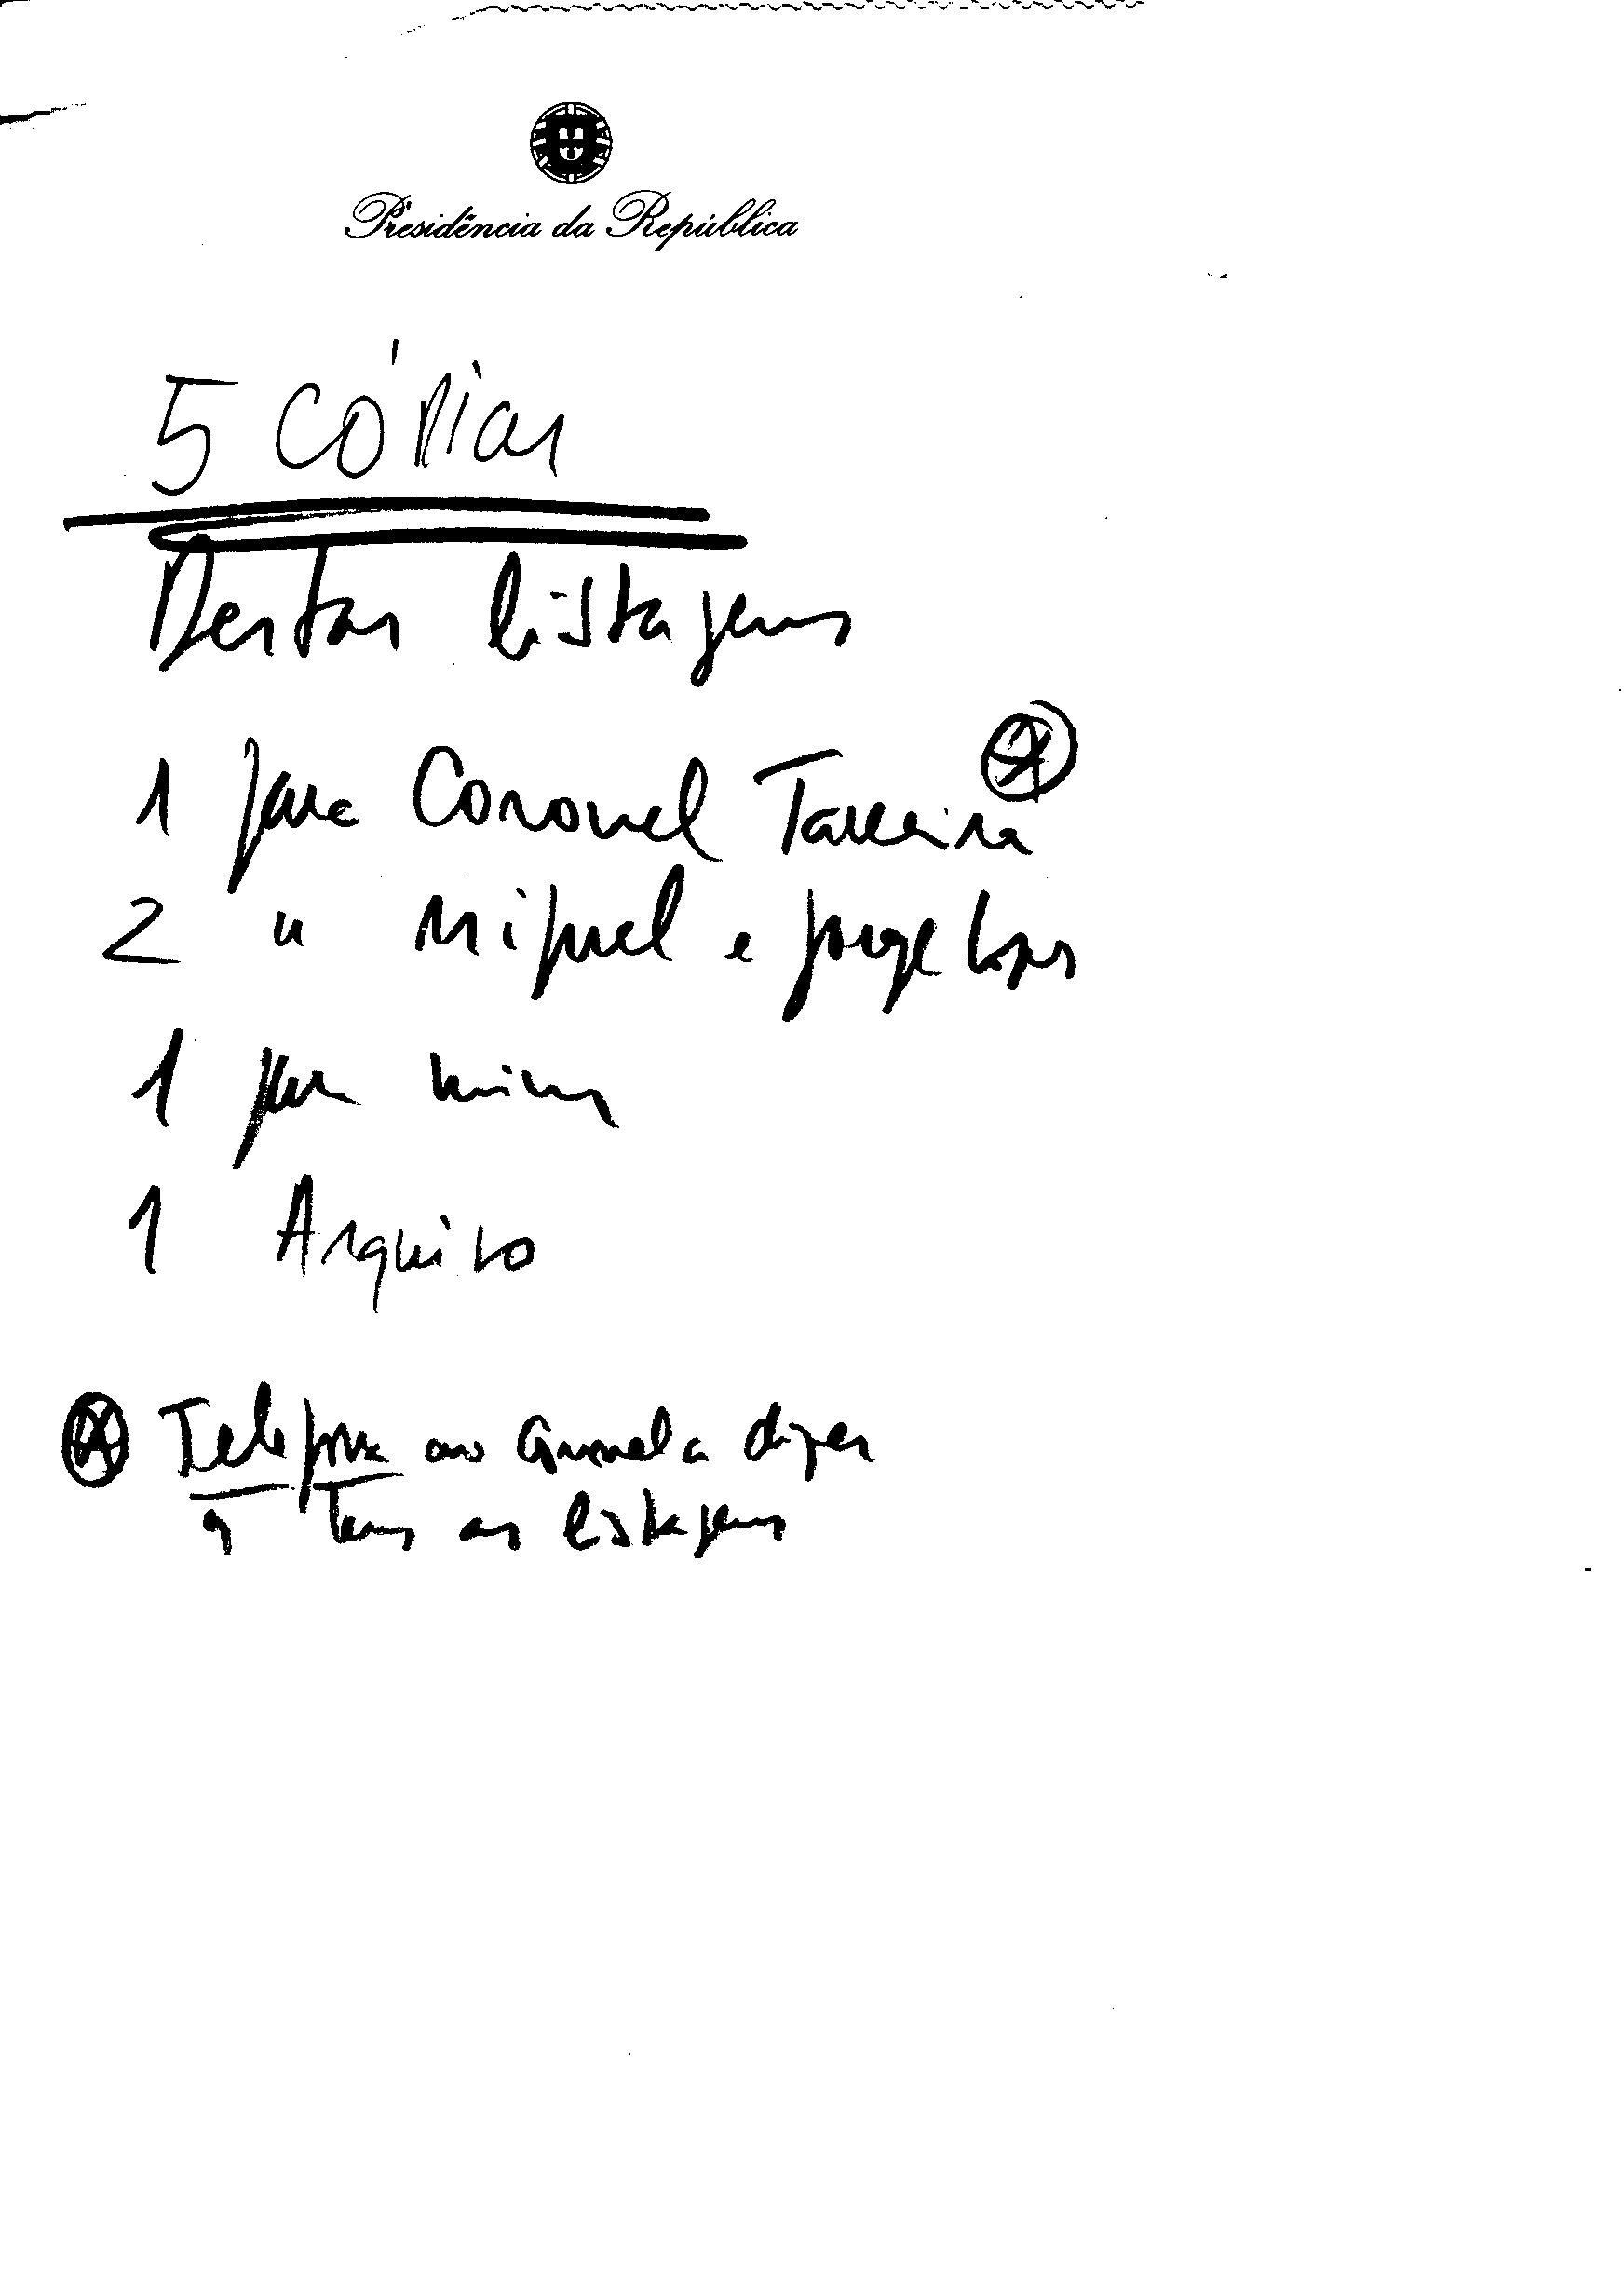 Presidência da República
5 CÓPIAS
Destas listagens
1 para Coronel Tarreira
2 " Miguel e Jorge Lopes
1 para mim
1 Arquivo
Telefone ao Coronel a dizer
q tem as listagens